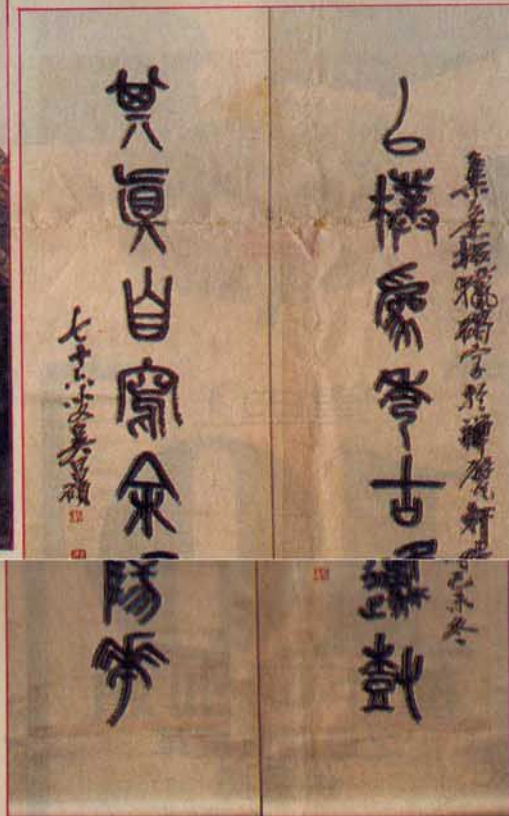 集獵碣字於禪甓軒時己未冬
以樸為秀古原樹
其真自寫余陽華
七十六叟吳昌碩